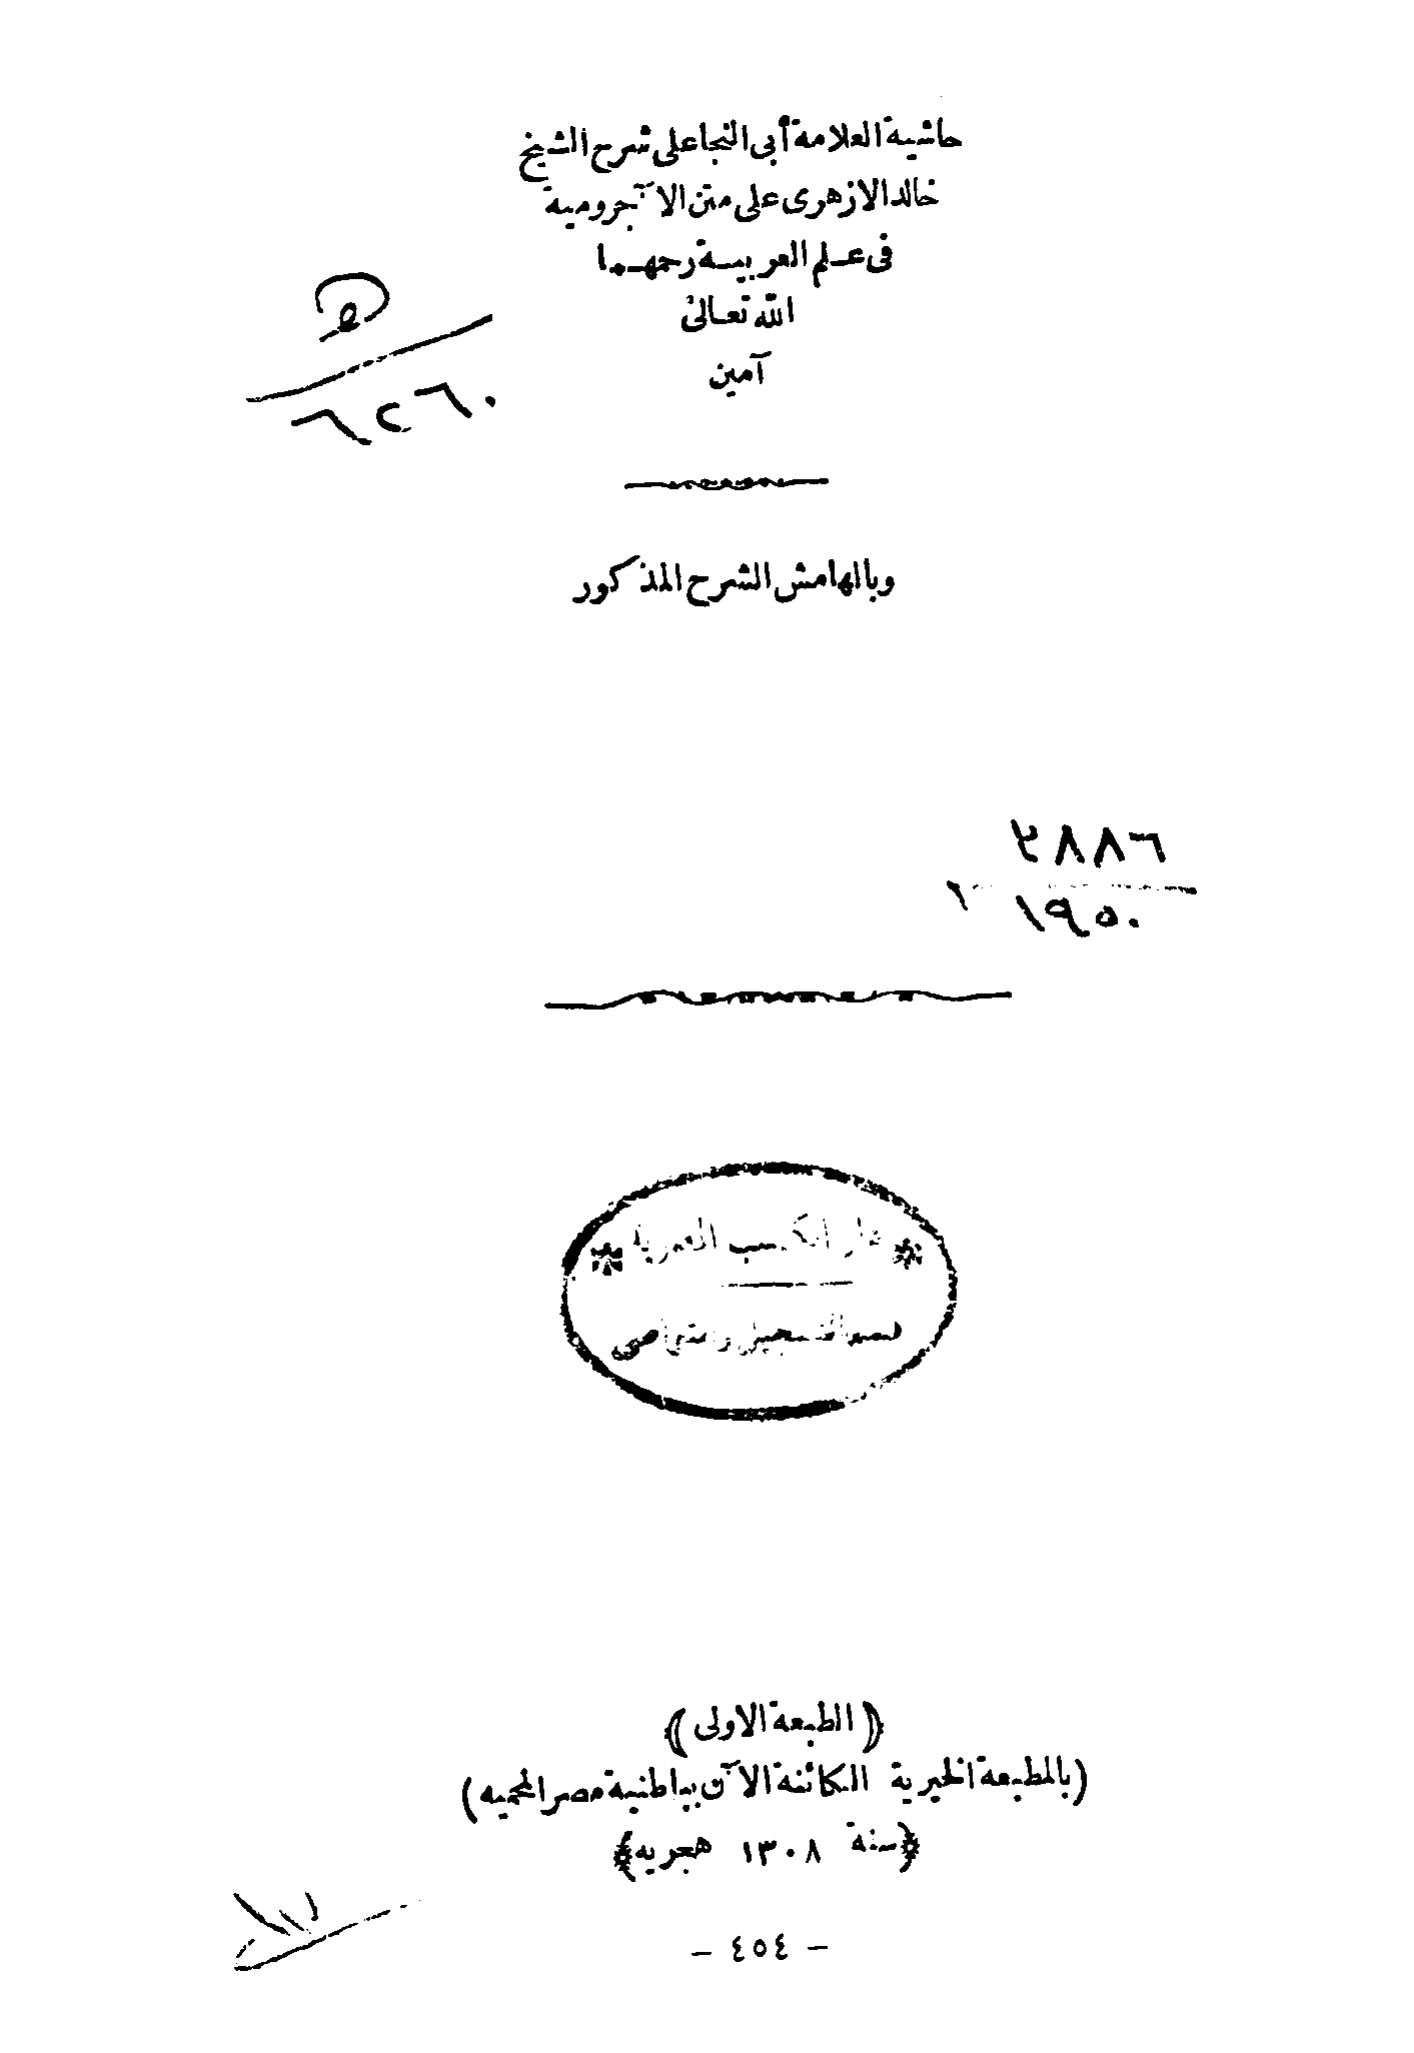 حاشية العلامة أبى النجا على شرح الشيخ
خالد الازهرى على متن الآجرومية
فى علم العربية رحمهما
الله تعالى
آمين
٦٢٦٠
وبالهامش الشرح المذكور
٢٨٨٦
١٩٥٠
دار الكتب المصرية
(الطبعة الاولى)
(بالمطبعة الخيرية الكائنة الآن بباطنية مصر المحميه)
(سنة ١٣٠٨ هجريه)
- ٤٥٤ -